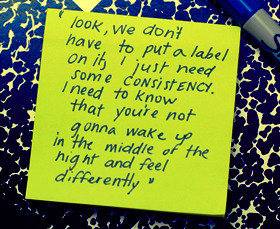 " look, we don't
have to put a label
on it, I just need
some CONSISTENCY.
I need to know
that you're not
gonna wake up
in the middle of the
night and feel
differently "